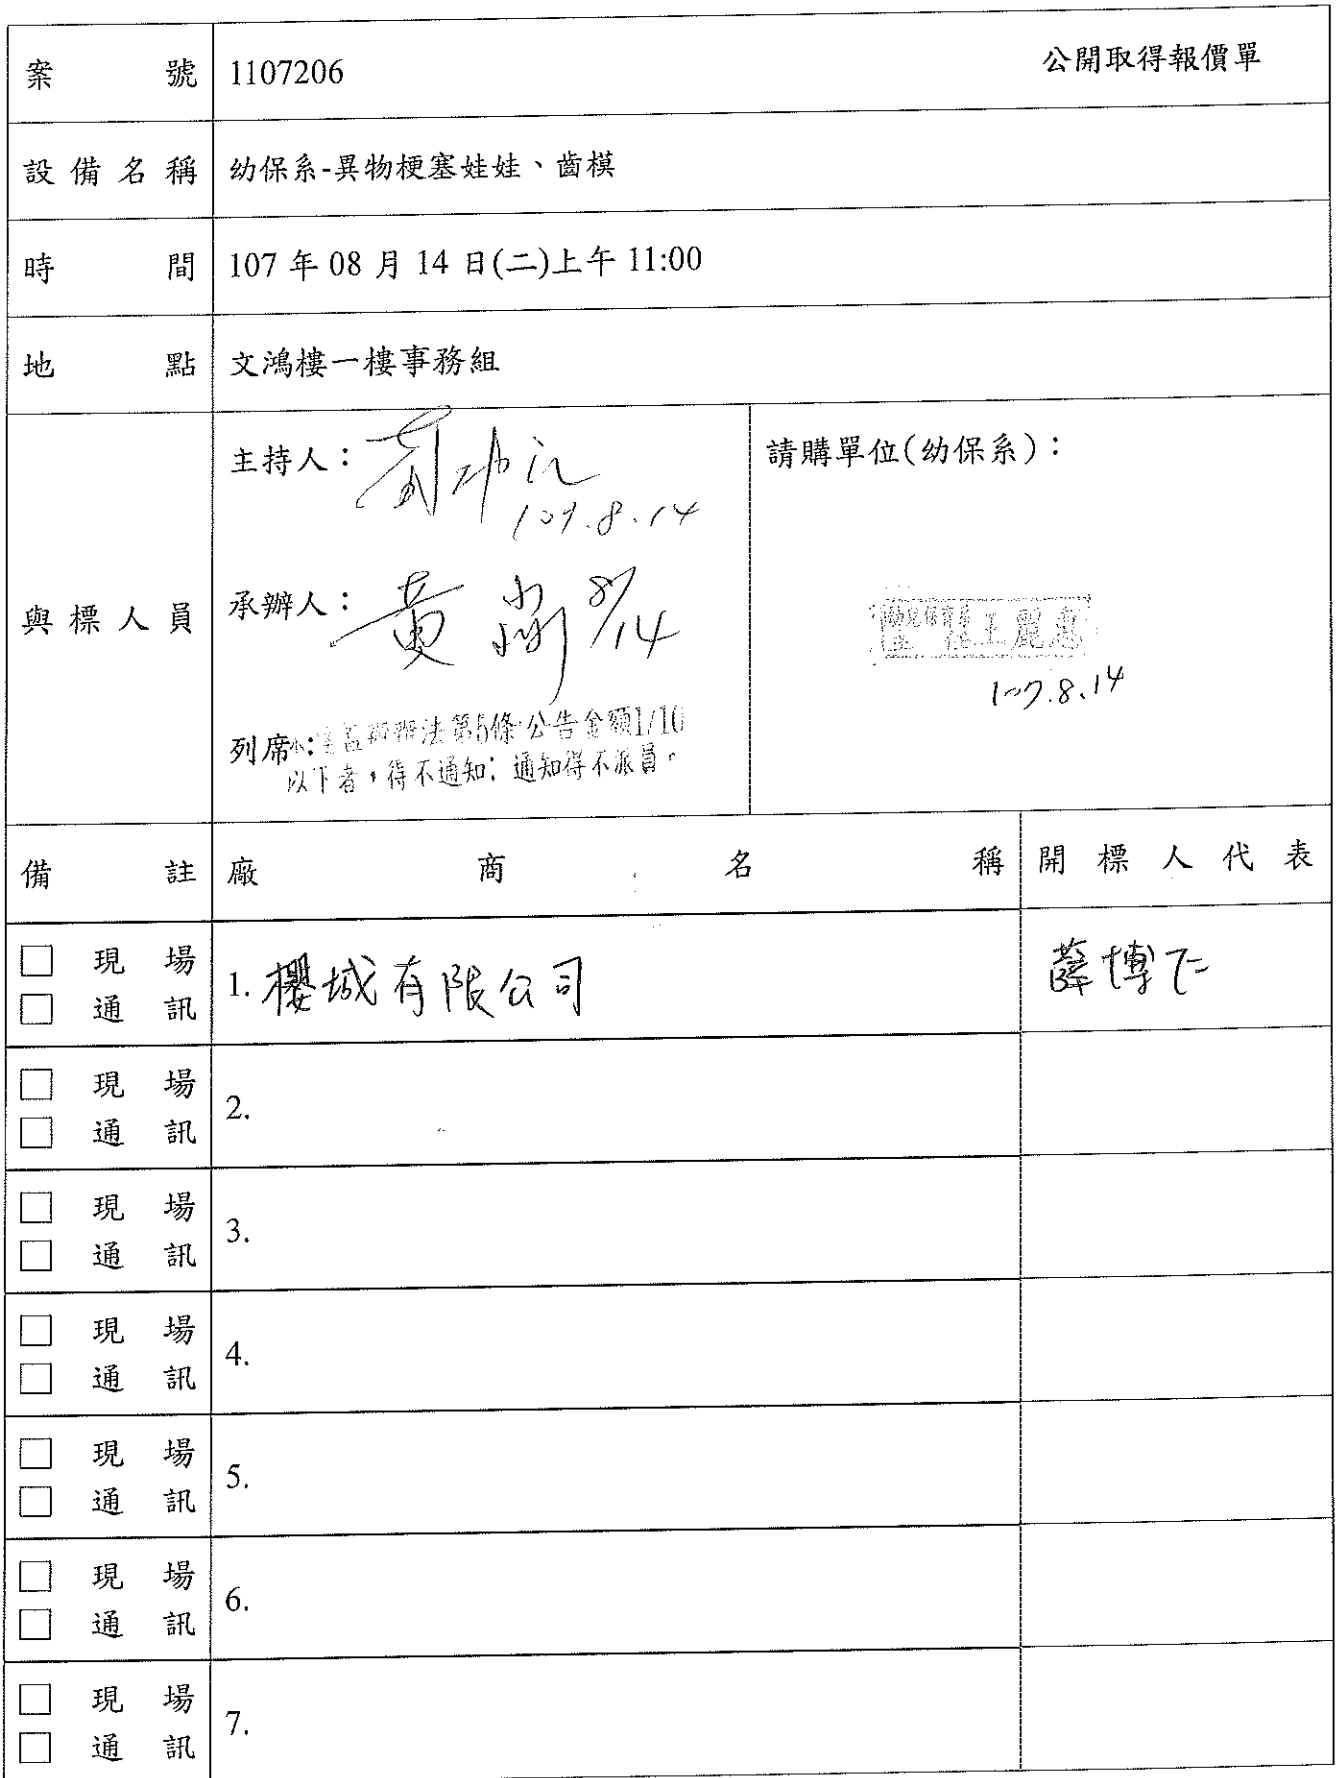 案號 1107206 公開取得報價單
設備名稱 幼保系-異物梗塞娃娃、齒模
時間 107 年 08 月 14 日(二)上午 11:00
地點 文鴻樓一樓事務組
與標人員
主持人：
107.8.14
承辦人：黃 8/14
列席：
辦法第5條公告金額1/10
以下者，得不通知；通知得不派員。
請購單位(幼保系)：
幼兒保育學
主任王麗惠
107.8.14
備註 廠商名稱 開標人代表
□ 現場
□ 通訊
1. 櫻城有限公司 薛博仁
□ 現場
□ 通訊
2.
□ 現場
□ 通訊
3.
□ 現場
□ 通訊
4.
□ 現場
□ 通訊
5.
□ 現場
□ 通訊
6.
□ 現場
□ 通訊
7.